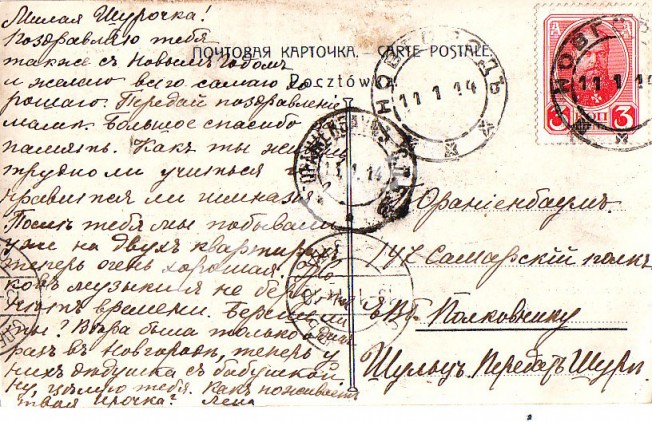 Милая Шурочка!
Поздравляю тебя
также с Новымъ Годомъ
и желаю всего самаго хо
рошаго. Передай поздравленіе
мамѣ. Большое спасибо
память. Какъ ты жи
трудно ли учиться
нравится ли гимназ
Послѣ тебя мы побывали
уже на двухъ квартирахъ
теперь очень хорошая.
ковъ музыки я не беру
нѣтъ времени. Берешь ли
ты? Вѣра была только одинъ
разъ въ Новгородѣ, теперь у
нихъ дѣдушка съ бабушкой
ну, цѣлую тебя. Какъ поживаетъ
твоя Ирочка? Лена
ПОЧТОВАЯ КАРТОЧКА. — CARTE POSTALE.
Pocztów
НОВГОРОДЪ
11 1 14
НОВГ
11 1
3 КОП 3
ОРАНІЕНБАУМЪ
1 14
Ораніенбаумъ
147 Самарскій полкъ
ЕВБ. Полковнику
Шульцъ. Передать Шурѣ.